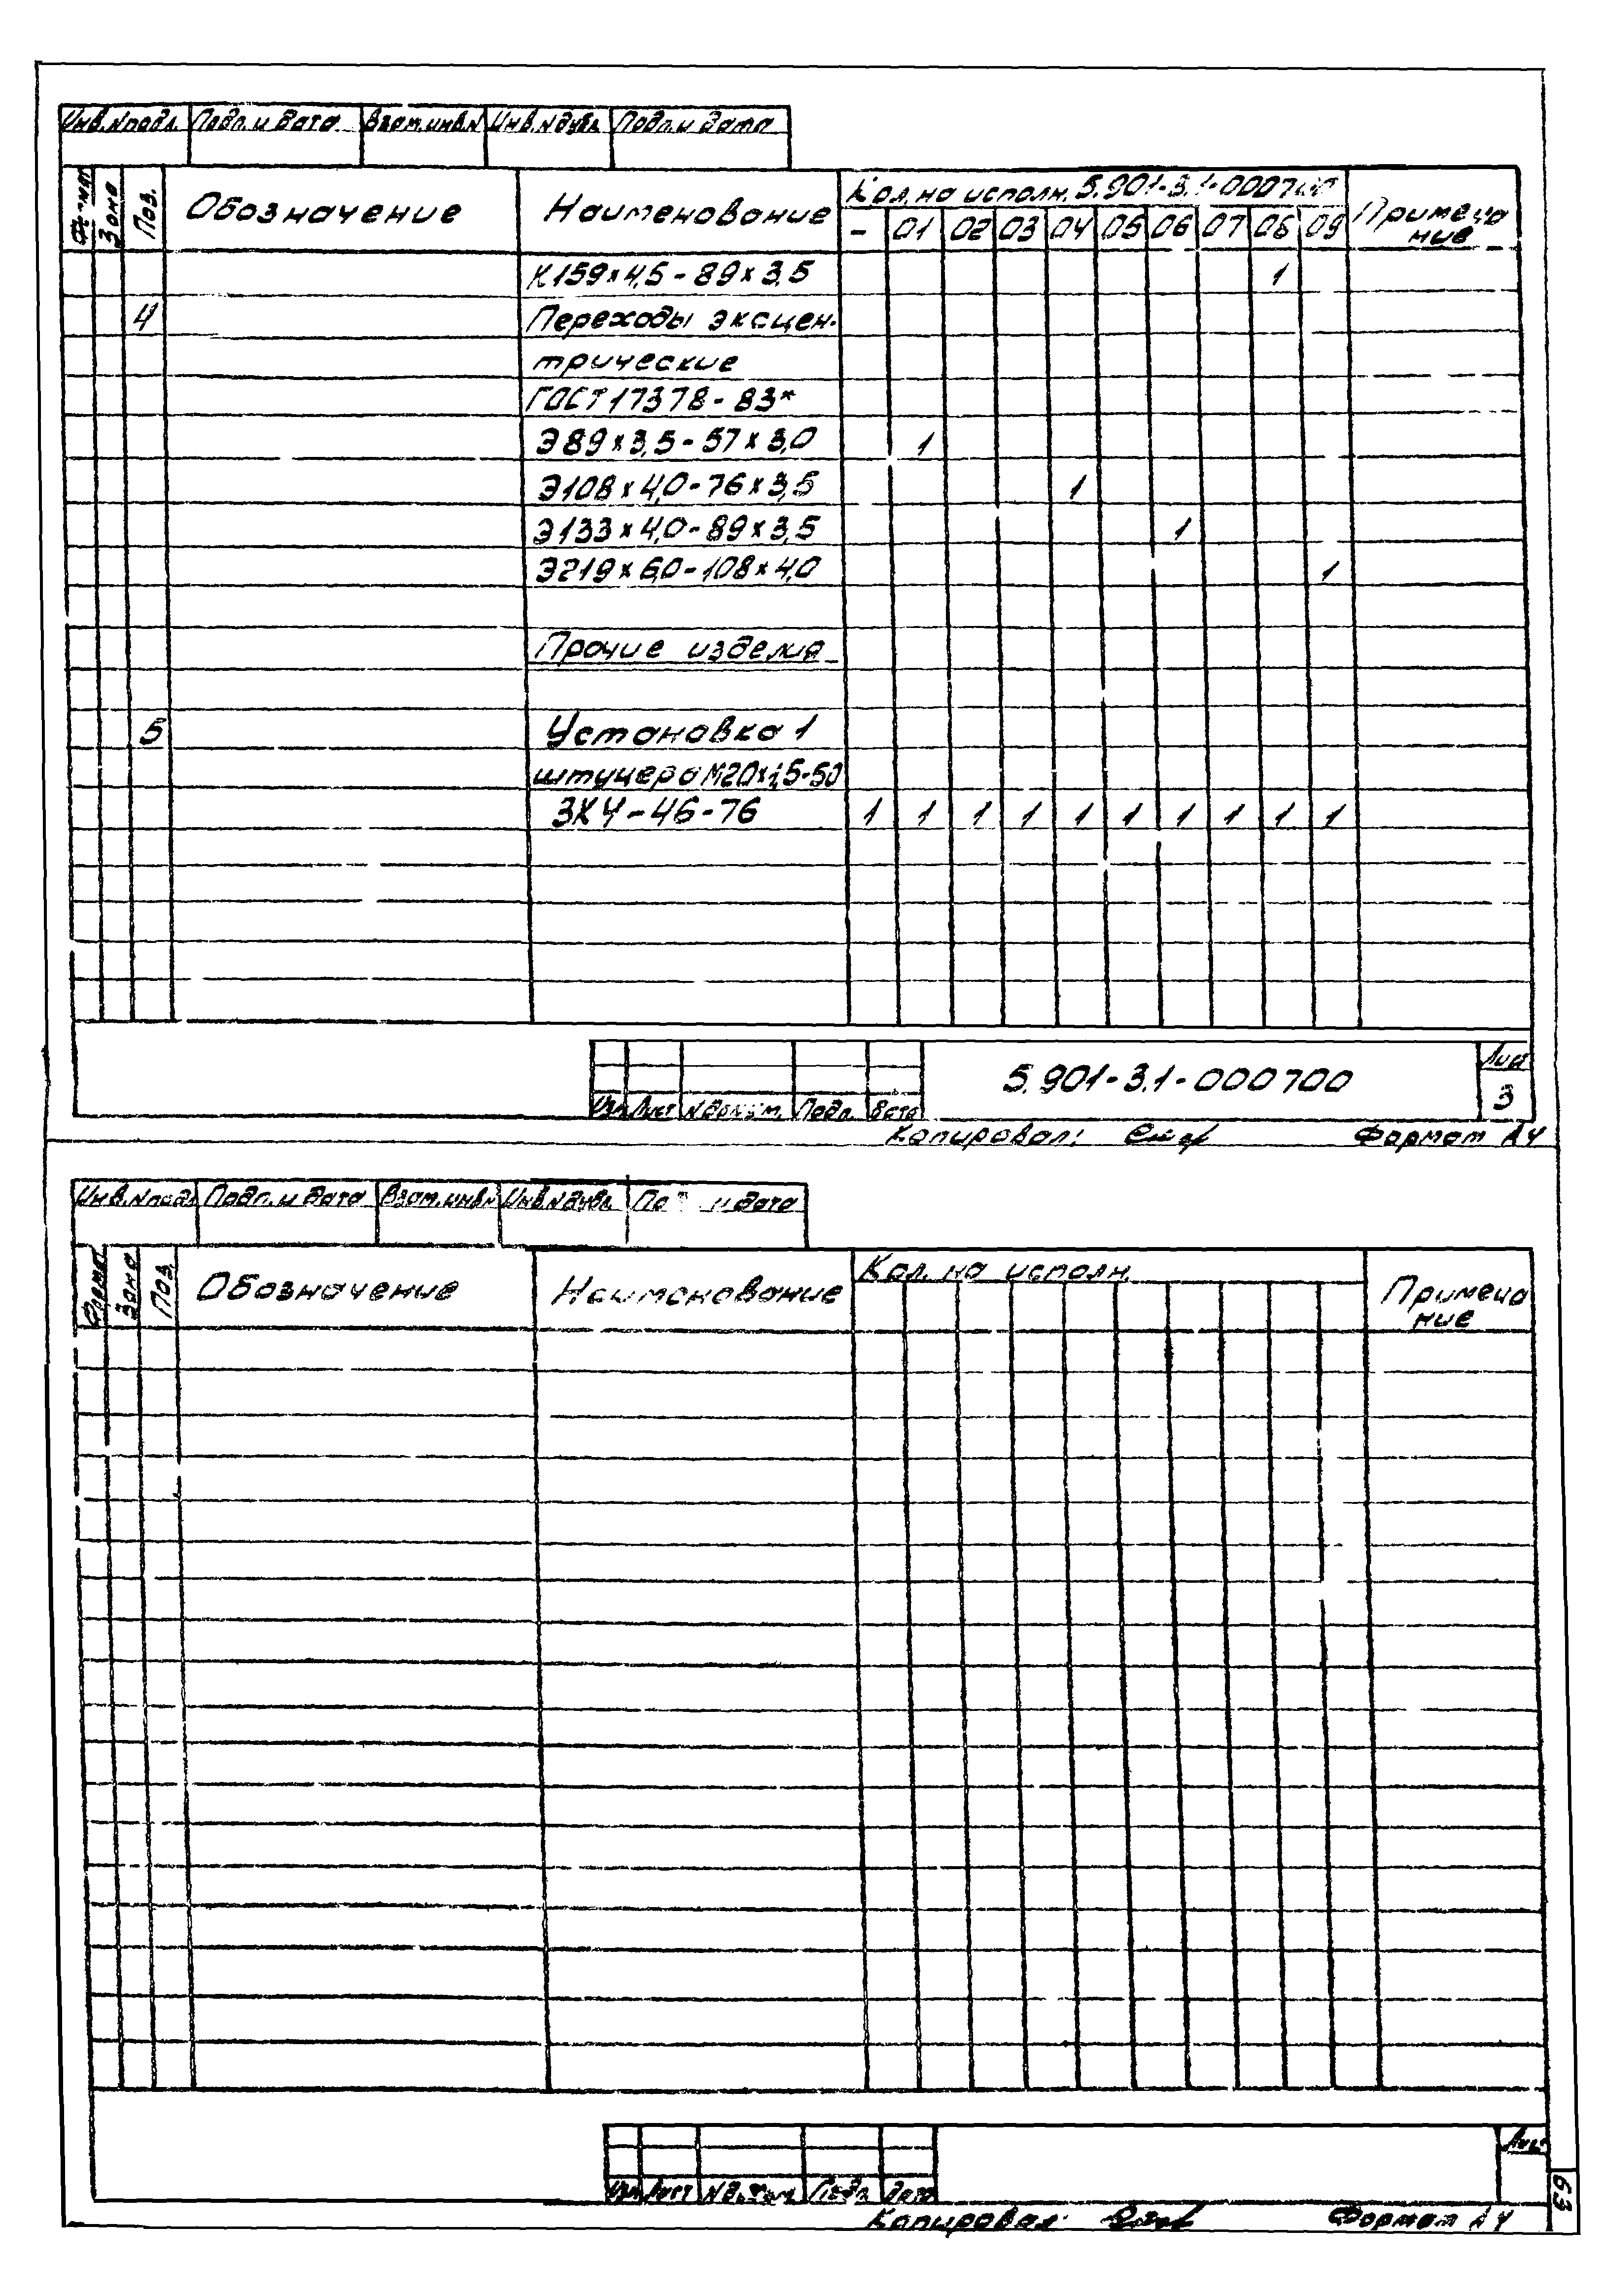 Инв.№подл. Подп. и дата Взам.инв.№ Инв.№дубл. Подп. и дата
Формат Зона Поз. Обозначение Наименование Кол. на исполн. 5.901-3.1-000700 Примеча
ние
- 01 02 03 04 05 06 07 08 09
К159×4,5-89×3,5 1
4 Переходы эксцен-
трические
ГОСТ 17378-83*
Э89×3,5-57×3,0 1
Э108×4,0-76×3,5 1
Э133×4,0-89×3,5 1
Э219×6,0-108×4,0 1
Прочие изделия
5 Установка 1
штуцера М20×1,5-50
ЗК4-46-76 1 1 1 1 1 1 1 1 1 1
5.901-3.1-000700
Лист
3
Изм Лист № докум. Подп. Дата
Копировал: Формат А4
Инв.№подл Подп. и дата Взам.инв.№ Инв.№дубл. Подп. и дата
Формат Зона Поз. Обозначение Наименование Кол. на исполн. Примеча
ние
Лист
Изм Лист № докум. Подп. Дата
Копировал: Формат А4
63